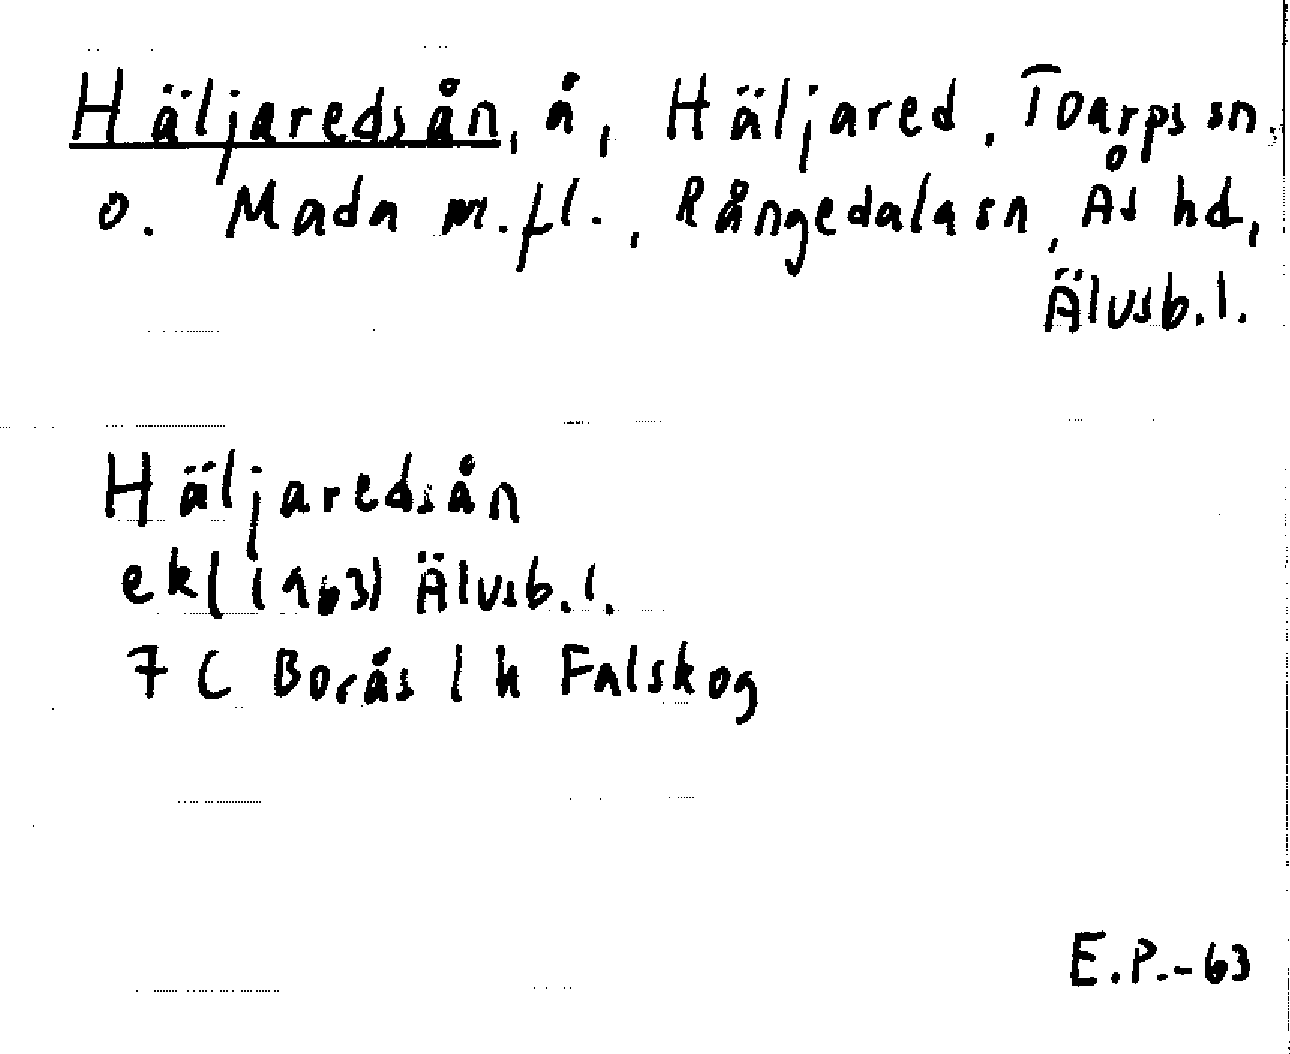 Häljaredsån, å, Häljared, Toarps sn
o. Mada m.fl., Rångedala sn, Ås hd,
Älvsb. l.
Häljaredsån
ek (1963) Älvsb. l.
7 C Borås l h Falskog
E.P.-63